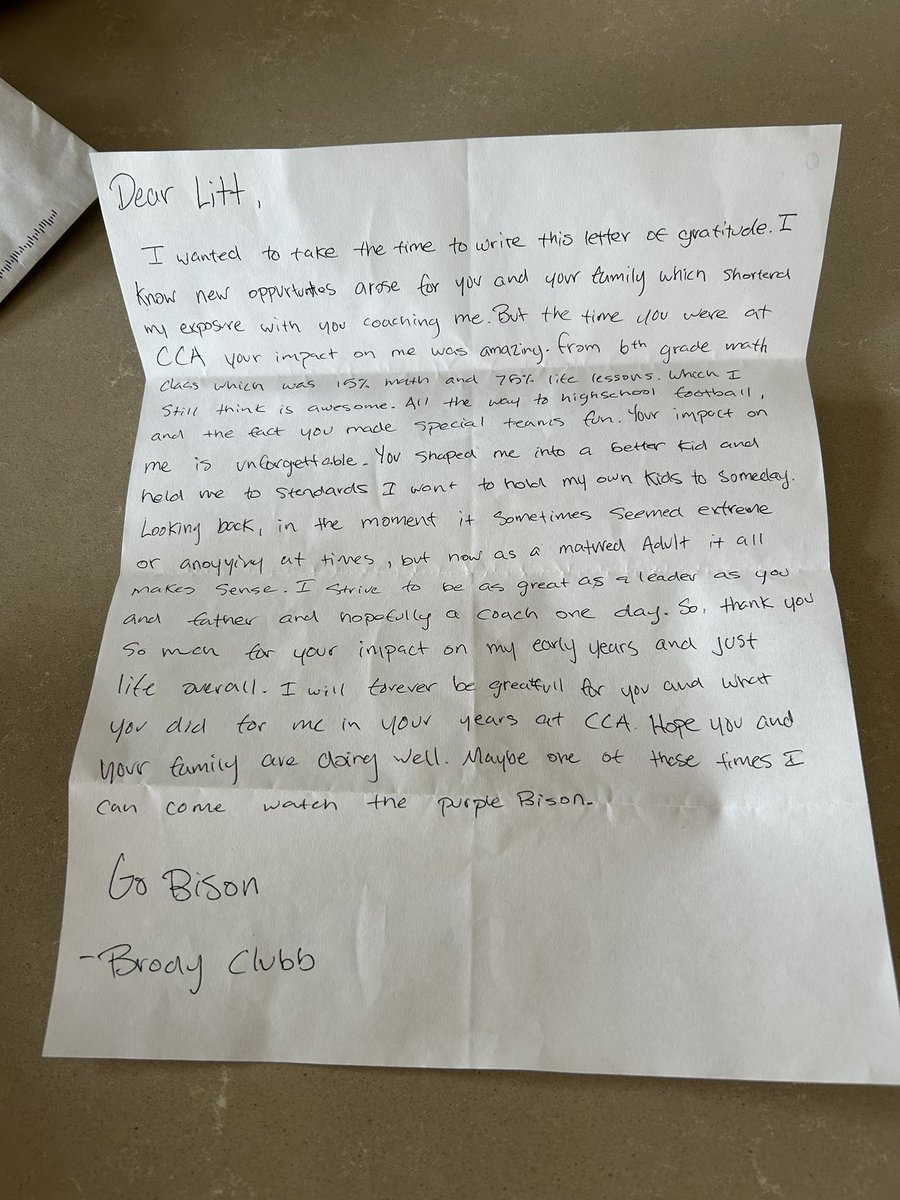 Dear Litt,
I wanted to take the time to write this letter of gratitude. I
know new oppurtunites arose for you and your family which shortend
my exposure with you coaching me. But the time you were at
CCA your impact on me was amazing. From 6th grade math
class which was 15% math and 75% life lessons. Which I
still think is awesome. All the way to highschool football,
and the fact you made special teams fun. Your impact on
me is unforgettable. You shaped me into a better kid and
held me to standards I want to hold my own kids to someday.
Looking back, in the moment it sometimes seemed extreme
or anoyying at times, but now as a matured Adult it all
makes sense. I strive to be as great as a leader as you
and father and hopefully a coach one day. So, thank you
so much for your impact on my early years and just
life overall. I will forever be greatfull for you and what
you did for me in your years at CCA. Hope you and
your family are doing well. Maybe one of these times I
can come watch the purple Bison.
Go Bison
-Brody Clubb